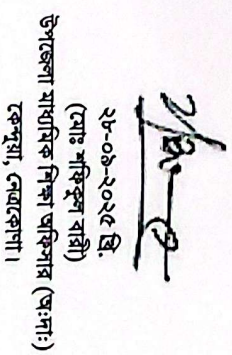 ২৮-০৯-২০২৫ খ্রি.
(মোঃ শফিকুল বারী)
উপজেলা মাধ্যমিক শিক্ষা অফিসার (অঃদাঃ)
কেন্দুয়া, নেত্রকোণা।